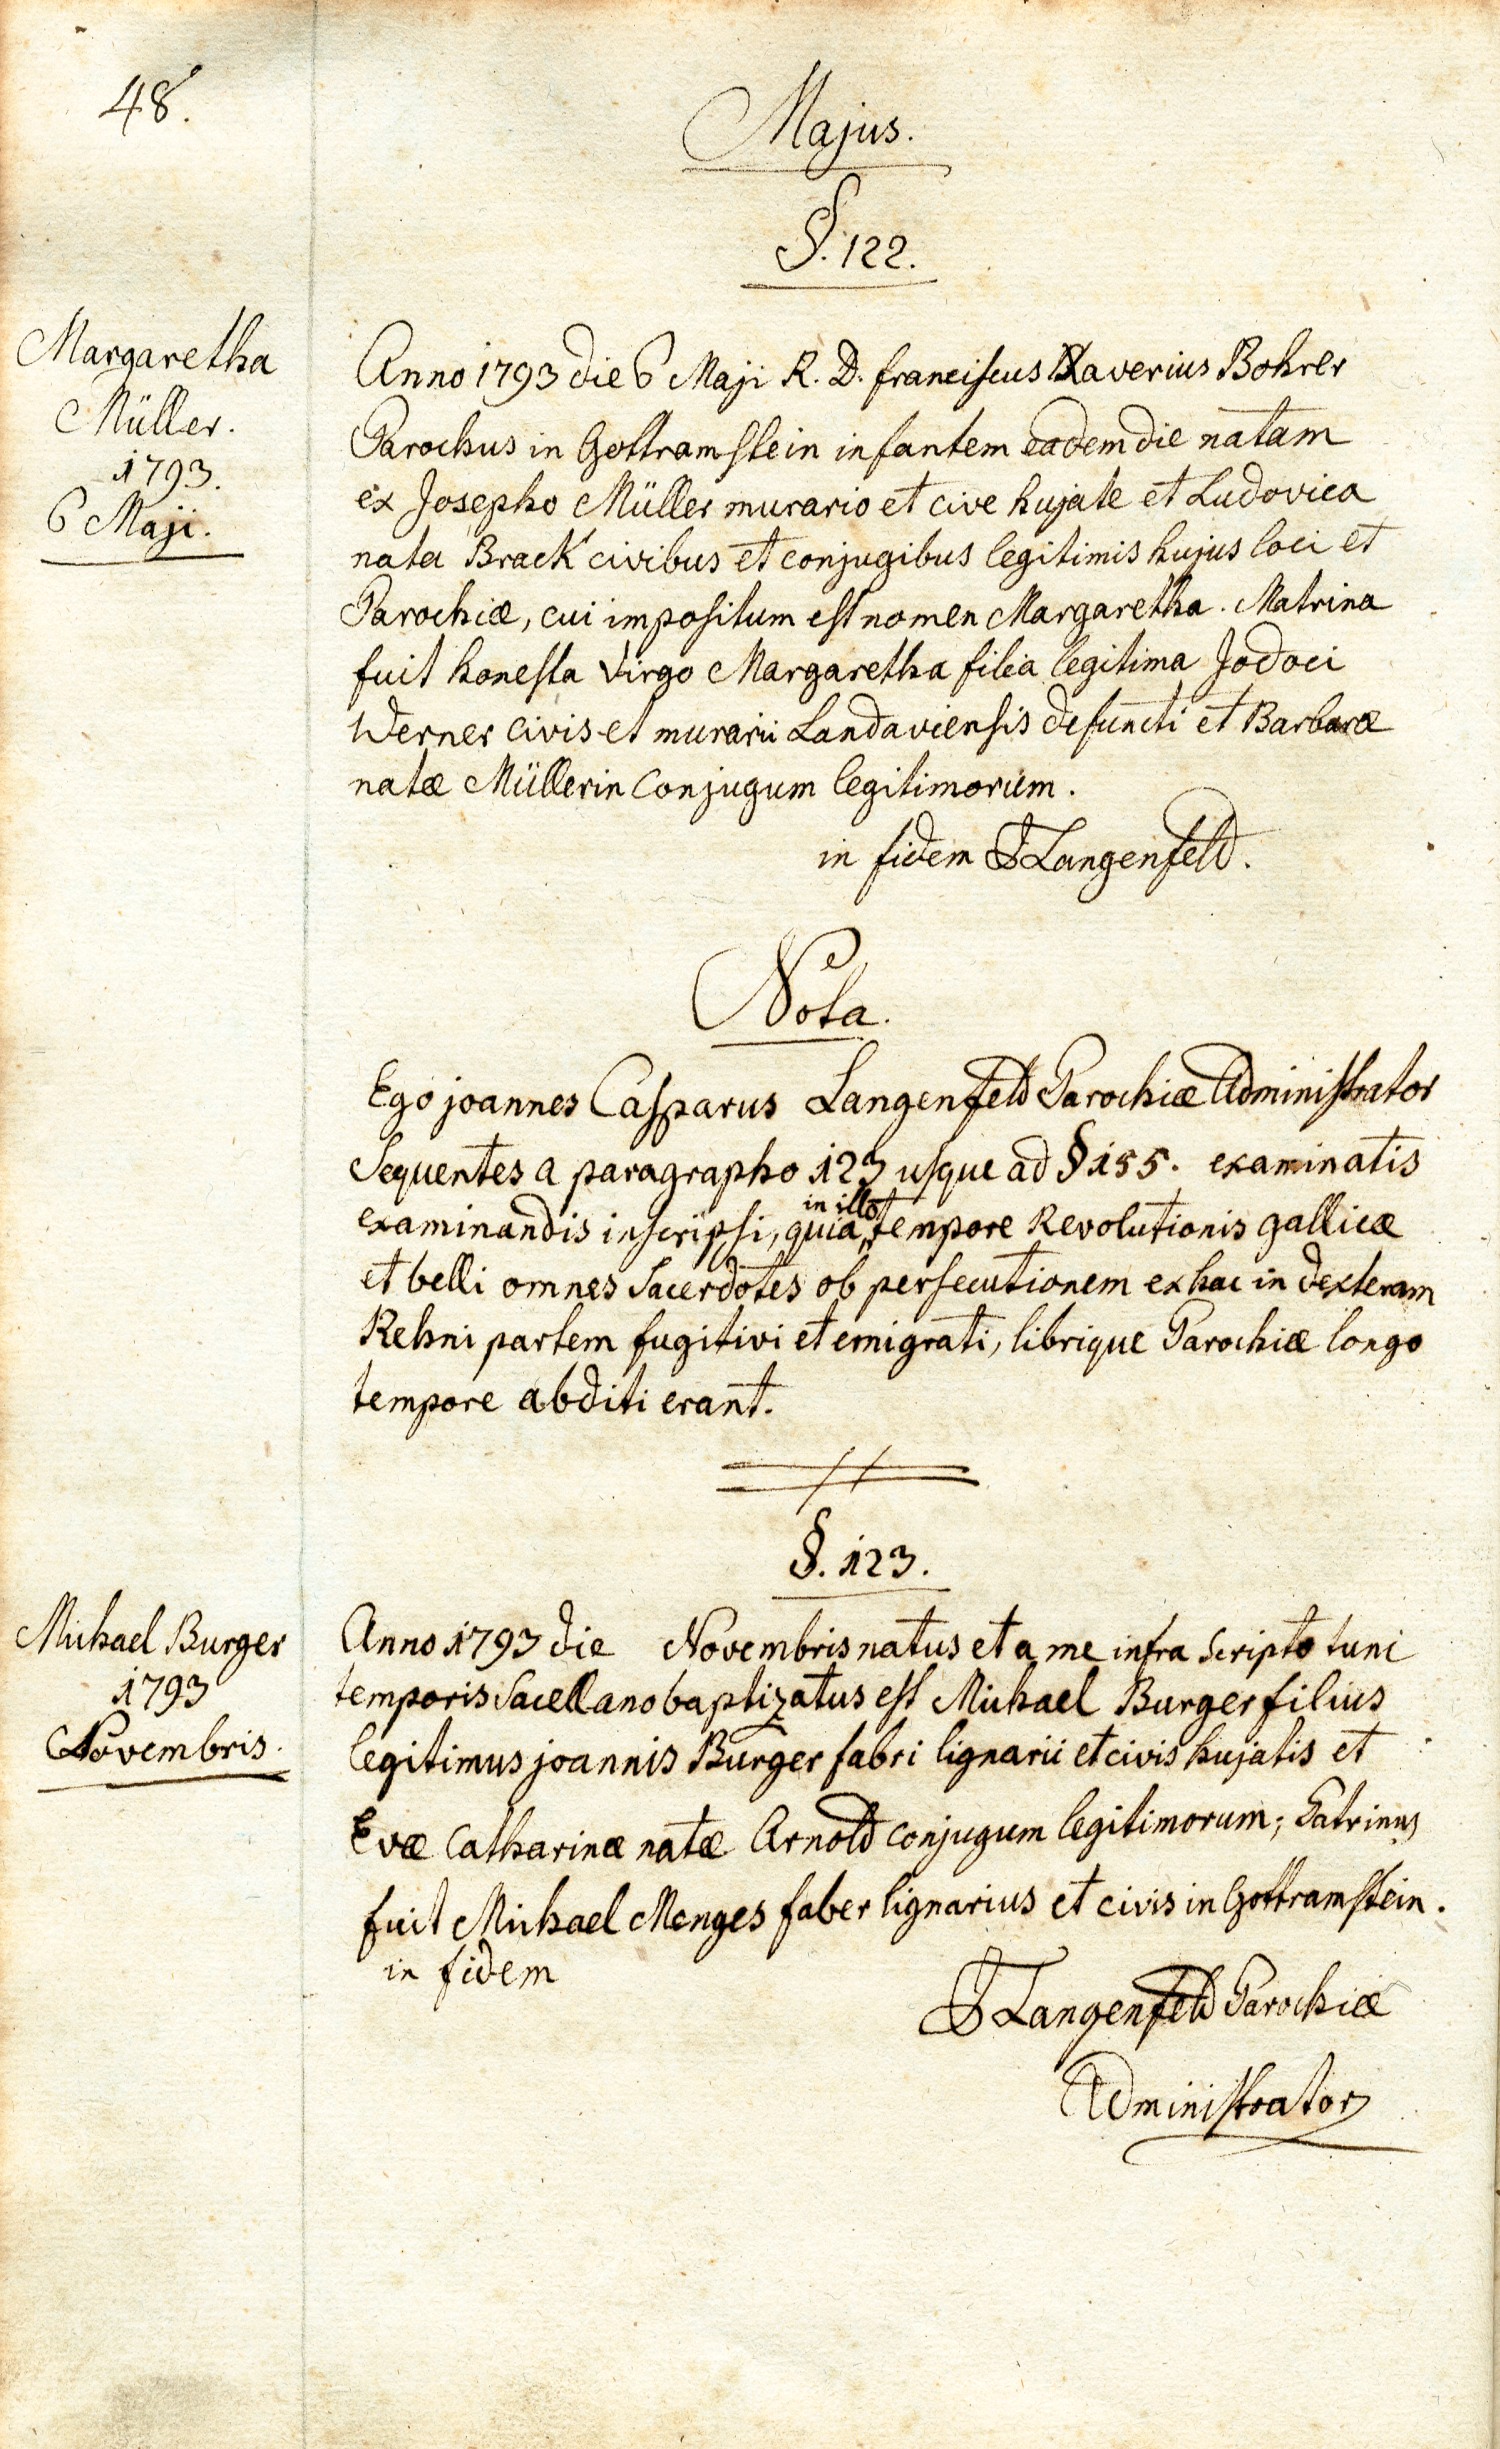 48.
Majus.
§. 122.
Margaretha
Müller.
1793.
6 Maji.
Anno 1793 die 6 Maji R. D. franciscus Xaverius Bohrer
Parochus in Gottramstein infantem eadem die natam
ex Josepho Müller murario et cive hujate et Ludovica
nata Brack civibus et conjugibus legitimis hujus loci et
Parochiæ, cui impositum est nomen Margaretha. Matrina
fuit honesta virgo Margaretha filia legitima Jodoci
Werner civis et murarii Landaviensis defuncti et Barbaræ
natæ Müllerin Conjugum legitimorum.
in fidem J Langenfeld.
Nota.
Ego joannes Casparus Langenfeld Parochiæ Administrator
Sequentes a paragrapho 123 usque ad § 155. examinatis
examinandis inscripsi, quia in illo tempore Revolutionis gallicæ
et belli omnes Sacerdotes ob persecutionem ex hac in dexteram
Rehni partem fugitivi et emigrati, librique Parochiæ longo
tempore abditi erant.
§. 123.
Michael Burger
1793
Novembris.
Anno 1793 die Novembris natus et a me infra scripto tunc
temporis Sacellano baptizatus est Michael Burger filius
legitimus joannis Burger fabri lignarii et civis hujatis et
Evæ Catharinæ natæ Arnold conjugum legitimorum; Patrinus
fuit Michael Menges faber lignarius et civis in Gottramstein.
in fidem
J Langenfeld Parochiæ
Administrator